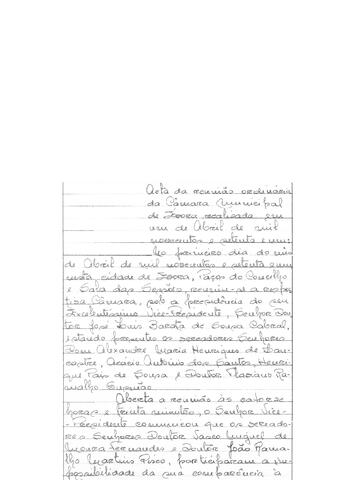 Acta da reunião ordinária
da Câmara Municipal
de Évora realizada em
um de Abril de mil
novecentos e setenta e um.
Ao primeiro dia do mês
de Abril de mil novecentos e setenta e um
nesta cidade de Évora, Paços do Concelho
e Sala das Sessões, reuniu-se a respec-
tiva Câmara, sob a presidência do seu
Excelentíssimo Vice-Presidente, Senhor Dou-
tor José Luís Barata de Sousa Cabral,
estando presentes os vereadores Senhores
Dom Alexandre Maria Henriques de Lan-
castre, Acácio António dos Santos, Henri-
que Pais de Sousa e Doutor Floriano Ra-
malho
Aberta a reunião às catorze
horas e trinta minutos, o Senhor Vice-
-Presidente comunicou que os vereado-
res Senhores Doutor Vasco Miguel de
Moura Fernandes e Doutor João Rama-
lho Martins Pisco, participaram a im-
possibilidade da sua comparência à